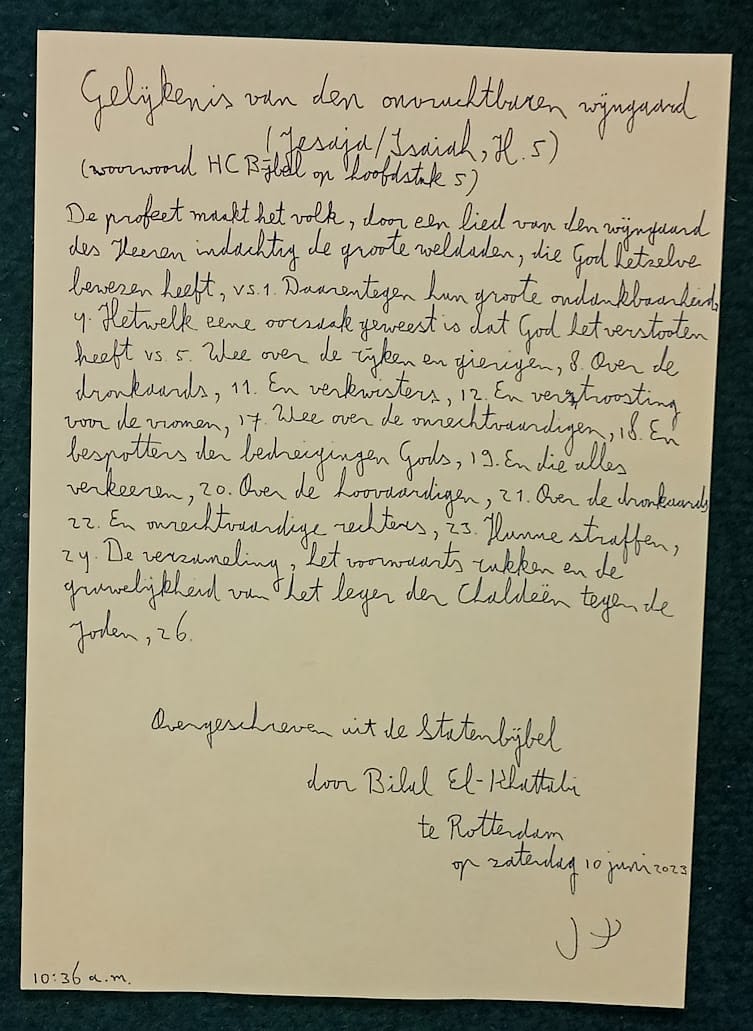 Gelijkenis van den onvruchtbaren wijngaard
(Jesaja/Isaiah, H. 5)
(voorwoord HC Bijbel op hoofdstuk 5)
De profeet maakt het volk, door een lied van den wijngaard
des Heeren indachtig de groote weldaden, die God hetzelve
bewezen heeft, vs. 1. Daarentegen hun groote ondankbaarheid,
4. Hetwelk eene oorzaak geweest is dat God het verstooten
heeft vs 5. Wee over de rijken en gierigen, 8. Over de
dronkaards, 11. En verkwisters, 12. En vertroosting
voor de vromen, 17. Wee over de onrechtvaardigen, 18. En
bespotters der bedreigingen Gods, 19. En die alles
verkeeren, 20. Over de hoovaardigen, 21. Over de dronkaards,
22. En onrechtvaardige rechters, 23. Hunne straffen,
24. De verzameling, het voorwaarts rukken en de
gruwelijkheid van het leger der Chaldeën tegen de
Joden, 26.
Overgeschreven uit de Statenbijbel
door Bilal El-Khattabi
te Rotterdam
op zaterdag 10 juni 2023
10:36 a.m.